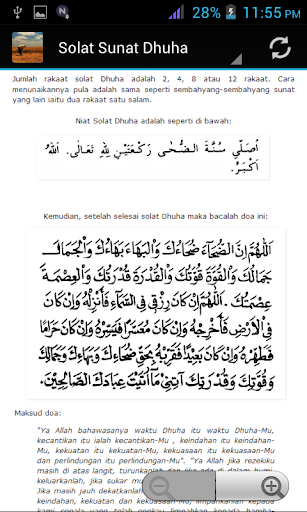 28% 11:55 PM
Solat Sunat Dhuha
Jumlah rakaat solat Dhuha adalah 2, 4, 8 atau 12 rakaat. Cara
menunaikannya pula adalah sama seperti sembahyang-sembahyang sunat
yang lain iaitu dua rakaat satu salam.
Niat Solat Dhuha adalah seperti di bawah:
اُصَلِّي سُنَّةَ الضُّحٰى رَكْعَتَيْنِ لِلّٰهِ تَعَالٰى. اَللّٰهُ
اَكْبَرُ.
Kemudian, setelah selesai solat Dhuha maka bacalah doa ini:
اَللّٰهُمَّ اِنَّ الضُّحَآءَ ضُحَاءُكَ وَالْبَهَاءَ بَهَاءُكَ وَالْجَمَالَ
جَمَالُكَ وَالْقُوَّةَ قُوَّتُكَ وَالْقُدْرَةَ قُدْرَتُكَ وَالْعِصْمَةَ
عِصْمَتُكَ. اَللّٰهُمَّ اِنْ كَانَ رِزْقِي فِي السَّمَآءِ فَأَنْزِلْهُ وَاِنْ كَانَ
فِي الْاَرْضِ فَأَخْرِجْهُ وَاِنْ كَانَ مُعَسَّرًا فَيَسِّرْهُ وَاِنْ كَانَ حَرَامًا
فَطَهِّرْهُ وَاِنْ كَانَ بَعِيْدًا فَقَرِّبْهُ بِحَقِّ ضُحَاءِكَ وَبَهَاءِكَ وَجَمَالِكَ
وَقُوَّتِكَ وَقُدْرَتِكَ آتِنِيْ مَا أَتَيْتَ عِبَادَكَ الصَّالِحِيْنَ.
Maksud doa:
"Ya Allah bahawasanya waktu Dhuha itu waktu Dhuha-Mu,
kecantikan itu ialah kecantikan-Mu , keindahan itu keindahan-
Mu, kekuatan itu kekuatan-Mu, kekuasaan itu kekuasaan-Mu
dan perlindungan itu perlindungan-Mu". "Ya Allah jika rezekiku
masih di atas langit, turunkanlah dan jika ada di dalam bumi,
keluarkanlah, jika sukar
Jika masih jauh dekatkanlah
keindahan, kekuatan dan kekuasaan